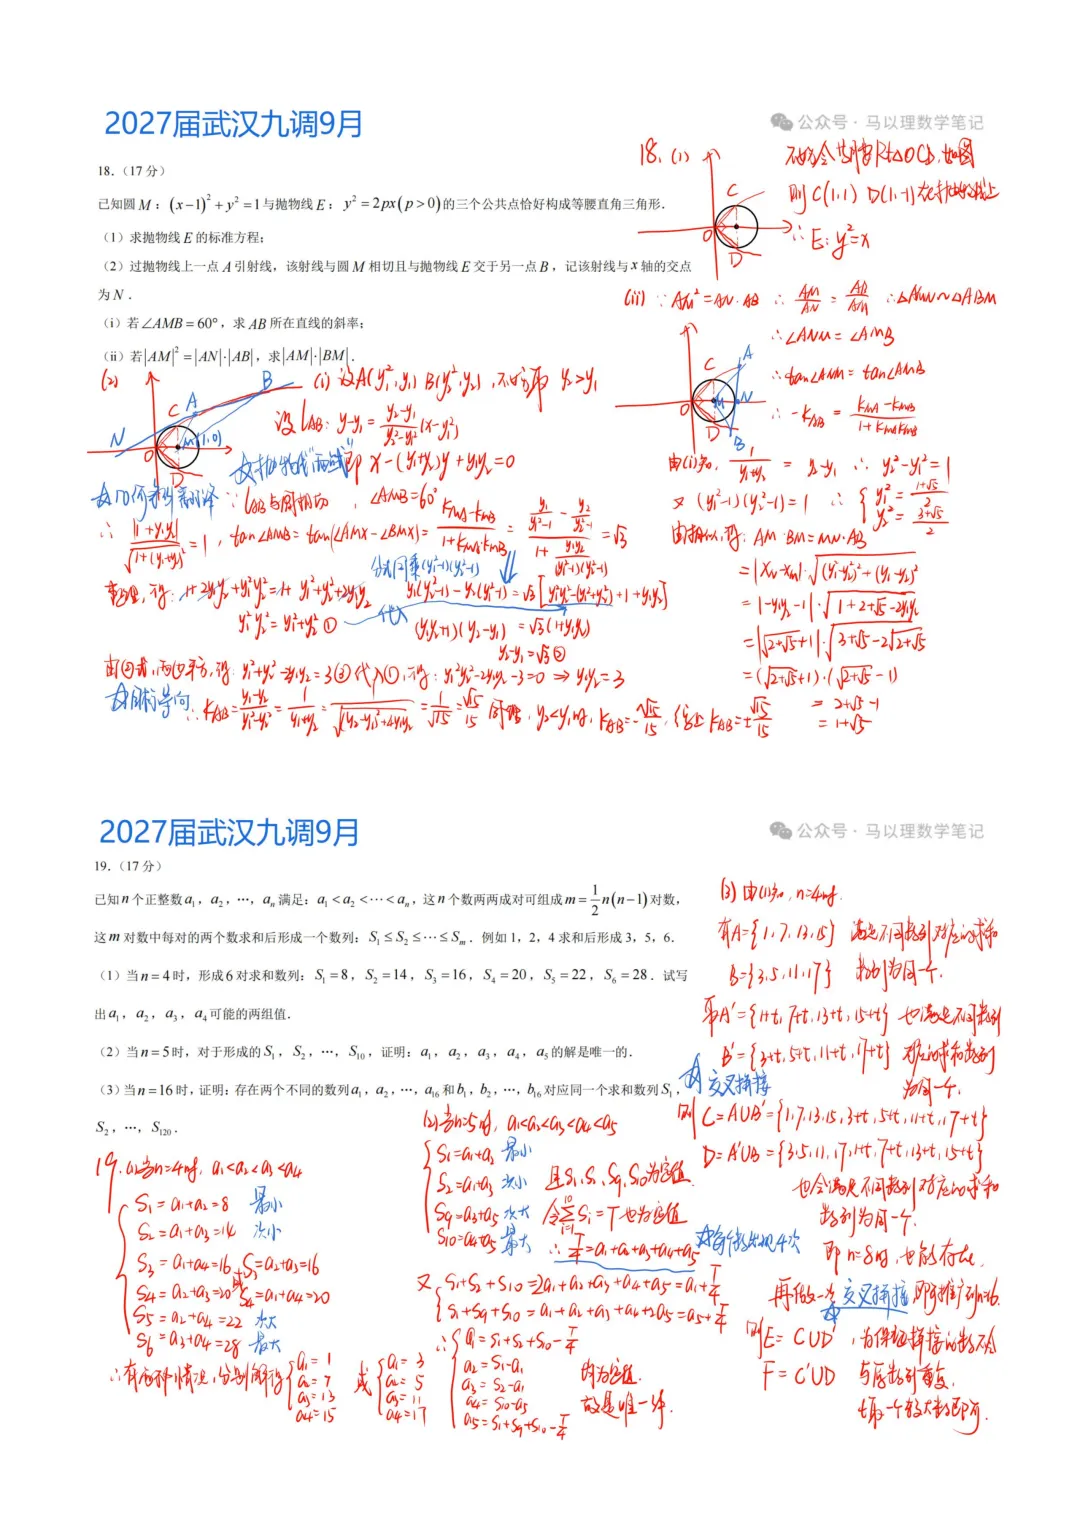 2027届武汉九调9月
公众号 · 马以理数学笔记
18.（17 分）
已知圆 M：(x−1)²+y²=1与抛物线 E：y²=2px(p>0)的三个公共点恰好构成等腰直角三角形．
（1）求抛物线 E 的标准方程；
（2）过抛物线上一点 A 引射线，该射线与圆 M 相切且与抛物线 E 交于另一点 B，记该射线与 x 轴的交点
为 N．
（i）若∠AMB=60°，求 AB 所在直线的斜率；
（ii）若|AM|²=|AN|·|AB|，求|AM|·|BM|．
18. (1)
如图
则 C(1,1) D(1,-1)在抛物线上
∴ E: y²=x
C
O
D
(2)
N
A
B
C
M(1,0)
O
D
(i) 设A(y₁²,y₁) B(y₂²,y₂), 不妨 y₂>y₁
设 l_AB: y-y₁=(y₂-y₁)/(y₂²-y₁²)(x-y₁²)
☆抛物线"两点式"即 x-(y₁+y₂)y+y₁y₂=0
∵ l_AB与圆相切, ∠AMB=60°
∴ |1+y₁y₂|/√(1+(y₁+y₂)²)=1, tan∠AMB=tan(∠AMx-∠BMx)=(k_MA-k_MB)/(1+k_MA·k_MB)=(y₁/(y₁²-1)-y₂/(y₂²-1))/(1+y₁y₂/((y₁²-1)(y₂²-1)))=√3
分式同乘(y₁²-1)(y₂²-1)
整理,得: 1+2y₁y₂+y₁²y₂²=1+y₁²+y₂²+2y₁y₂
y₁(y₂²-1)-y₂(y₁²-1)=√3[y₁²y₂²-(y₁²+y₂²)+1+y₁y₂]
y₁²y₂²=y₁²+y₂² ① 代入
(y₁y₂+1)(y₂-y₁)=√3(1+y₁y₂)
y₂-y₁=√3 ②
由②式,两边平方,得: y₁²+y₂²-2y₁y₂=3 ③ 代入①,得: y₁²y₂²-2y₁y₂-3=0 ⇒ y₁y₂=3
☆目标导向
∴ k_AB=(y₁-y₂)/(y₁²-y₂²)=1/(y₁+y₂)=1/√((y₂-y₁)²+4y₁y₂)=1/√15=√15/15 同理, y₂<y₁时, k_AB=-√15/15, 综上 k_AB=±√15/15
(ii) ∵ AM²=AN·AB ∴ AM/AN=AB/AM ∴ △AMN∽△ABM
∴ ∠ANM=∠AMB
∴ tan∠ANM=tan∠AMB
∴ -k_AB=(k_MA-k_MB)/(1+k_MA k_MB)
C
A
O
M
N
D
B
由(i)知, 1/(y₁+y₂)=y₂-y₁ ∴ y₂²-y₁²=1
又 (y₁²-1)(y₂²-1)=1 ∴ { y₁²=(1+√5)/2
y₂²=(3+√5)/2
由相似,得: AM·BM=MN·AB
=|x_N-x_M|·√((y₁²-y₂²)²+(y₁-y₂)²)
=|-y₁y₂-1|·√(1+2+√5-2y₁y₂)
=|√(2+√5)+1|·√(3+√5-2√(2+√5))
=(√(2+√5)+1)·(√(2+√5)-1)
=2+√5-1
=1+√5
2027届武汉九调9月
公众号 · 马以理数学笔记
19.（17 分）
已知 n 个正整数 a₁，a₂，…，aₙ 满足：a₁<a₂<⋯<aₙ，这 n 个数两两成对可组成 m=½n(n−1)对数，
这 m 对数中每对的两个数求和后形成一个数列：S₁≤S₂≤⋯≤Sₘ．例如 1，2，4 求和后形成 3，5，6．
（1）当 n=4 时，形成 6 对求和数列：S₁=8，S₂=14，S₃=16，S₄=20，S₅=22，S₆=28．试写
出 a₁，a₂，a₃，a₄ 可能的两组值．
（2）当 n=5 时，对于形成的 S₁，S₂，…，S₁₀，证明：a₁，a₂，a₃，a₄，a₅ 的解是唯一的．
（3）当 n=16 时，证明：存在两个不同的数列 a₁，a₂，…，a₁₆ 和 b₁，b₂，…，b₁₆ 对应同一个求和数列 S₁，
S₂，…，S₁₂₀．
19. (1)当n=4时, a₁<a₂<a₃<a₄
S₁=a₁+a₂=8 最小
S₂=a₁+a₃=14 次小
S₃=a₁+a₄=16 或 S₃=a₂+a₃=16
S₄=a₂+a₃=20 S₄=a₁+a₄=20
S₅=a₂+a₄=22 次大
S₆=a₃+a₄=28 最大
∴有两种情况, 分别解得 { a₁=1 或 { a₁=3
a₂=7 a₂=5
a₃=13 a₃=11
a₄=15 a₄=17
(2)当n=5时, a₁<a₂<a₃<a₄<a₅
S₁=a₁+a₂ 最小
S₂=a₁+a₃ 次小 且S₁,S₂,S₉,S₁₀为定值
S₉=a₃+a₅ 次大 令∑(i=1→10) Sᵢ=T也为定值
S₁₀=a₄+a₅ 最大 ∴ T/4=a₁+a₂+a₃+a₄+a₅ ☆每个数出现4次
又 { S₁+S₂+S₁₀=2a₁+a₂+a₃+a₄+a₅=a₁+T/4
S₁+S₉+S₁₀=a₁+a₂+a₃+a₄+2a₅=a₅+T/4
∴ { a₁=S₁+S₂+S₁₀-T/4
a₂=S₁-a₁ 均为定值.
a₃=S₂-a₁
a₄=S₁₀-a₅ 故是唯一解.
a₅=S₁+S₉+S₁₀-T/4
(3)由(1)知, n=4时.
有A={1,7,13,15} 满足不同数列对应的求和
B={3,5,11,17} 数列为同一个.
即A'={1+t,7+t,13+t,15+t} 也满足不同数列
B'={3+t,5+t,11+t,17+t} 对应的求和数列
☆交叉拼接 为同一个.
则 C=A∪B'={1,7,13,15,3+t,5+t,11+t,17+t}
D=A'∪B={3,5,11,17,1+t,7+t,13+t,15+t}
也会满足不同数列对应的求和
数列为同一个.
即 n=8时, 也能存在.
再做一次交叉拼接 即可推广到n=16.
则E=C∪D', 为保证拼接的数不会
F=C'∪D 与原数列重复,
t取一个较大数即可.